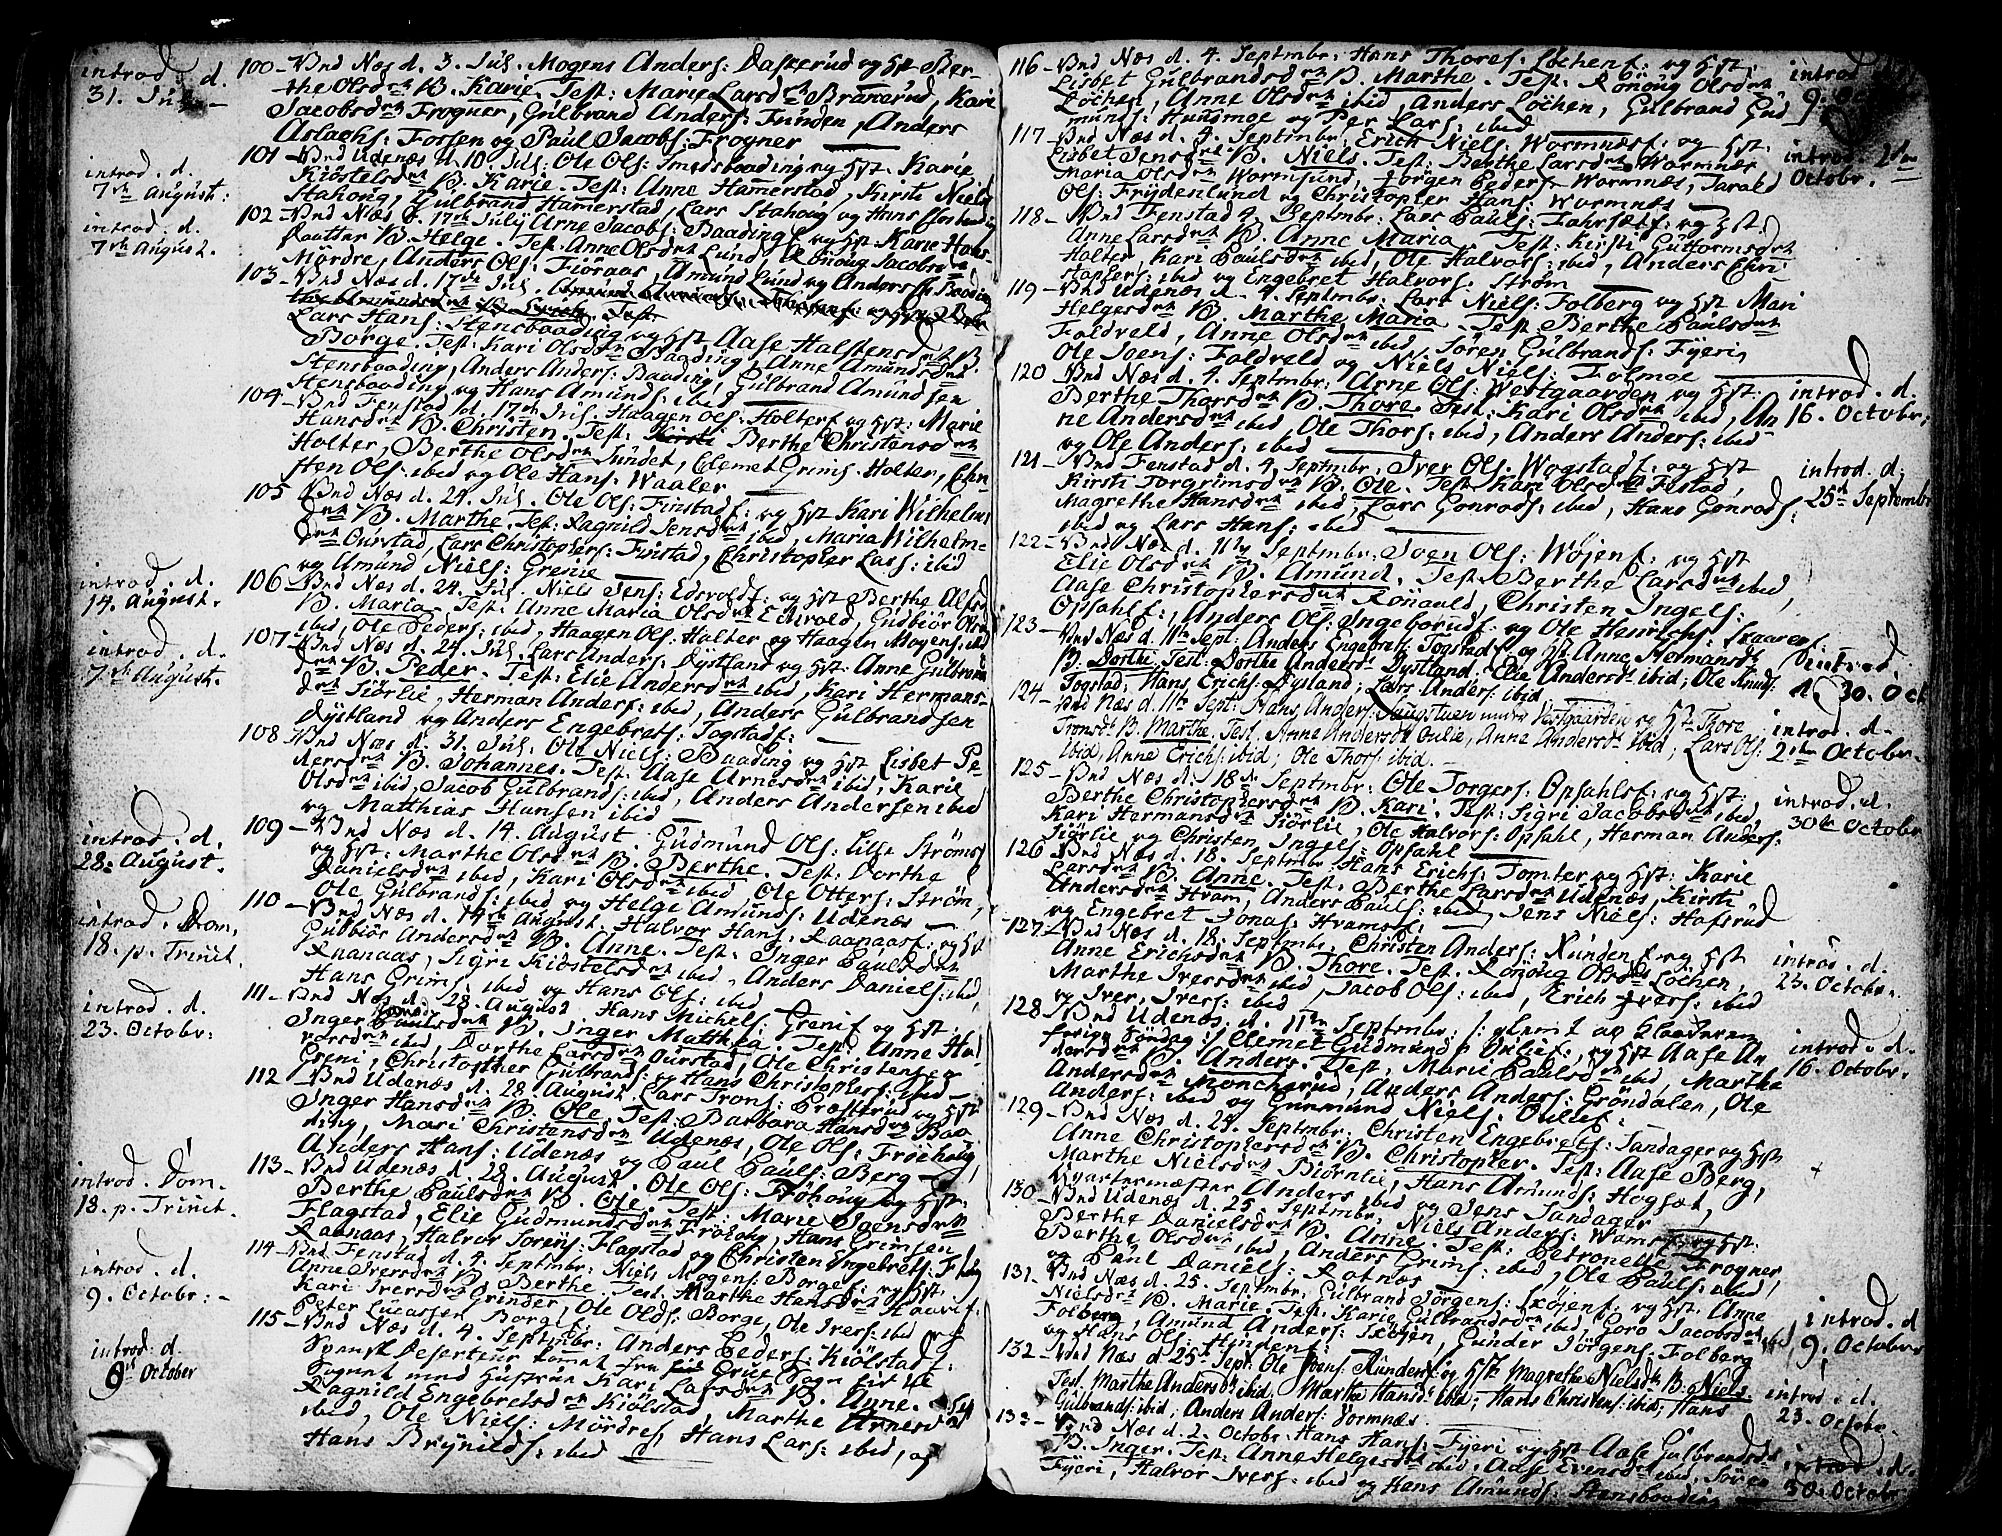 introd: d.
31. Jul: –
100 – Und Næs d. 3. Jul. Mogens Anders: Daskerud og Hst Ber-
the Olsdtr B. Karie. Test: Marie Larsdtr Brækerud, Kari
Jacobsdtr Frogner, Gulbrand Anders: Funden, Anders
Aslachs: Fossen og Paul Jacobs: Frogner
introd. d.
7de August:
101 – Und Udenæs d. 10 Jul. Ole Ols: Smedsbaading og Hst. Karie
Kiostelsdtr B. Karie. Test: Anne Hamerstad, Kirsti Niels
Stahoug, Gulbrand Hamerstad, Lars Stahoug og Hans ibid
introd. d.
7de August.
102 – Und Næs d. 17de July Arne Jacobs: Baading og Hst Karie Hans-
Daatter B. Helge. Test. Anne Olsdtr Lund, Rønoug Jacobsdtr
Mordre, Anders Ols: Fioraas, Amund Lund og Anders Baading
103 – Und Næs d. 17de Jul.
Lars Hans: Stensbaading og Hst Aase Halstensdtr B.
Børge. Test: Kari Olsdtr Baading, Anne Amundsdtr
Stensbaading, Anders Anders: Baading, Gulbrand Amundsen
Stensbaading og Hans Amunds: ibid
104 – Und Fenstad d. 17de Jul. Haagen Ols: Holter og Hst: Marie
Hansdtr B. Christen. Test: Berthe Christensdtr
Holter, Berthe Olsdtr Sundet, Clemet Grims: Holter, Chri-
sten Ols: ibid og Ole Hans: Waaler
105 Und Næs d. 24. Jul. Ole Ols: Finstad: og Hst Kari Wilhelms
dtr B. Marthe. Test: Ragnild Jensdtr ibid, Maria Wilhelm-
dtr Ourstad, Lars Christophers: Finstad, Christopher Lars: ibid
og Amund Niels: Grenie
introd. d.
14. August.
106 – Und Næs d. 24. Jul. Niels Jens: Edsvold: og Hst Berthe Alfsd
B. Maria. Test: Anne Maria Olsdtr Edsvold, Gudbiør Olsdtr
ibid, Ole Peders: ibid, Haagen Ols: Holter og Haagen Mogens: ibid
introd. d.
7de August.
107 – Und Næs d. 24. Jul. Lars Anders: Dystland og Hst: Anne Gulbrands
dtr B. Peder. Test: Elie Andersdtr ibid, Kari Hermans-
dtr Siørlie, Herman Anders: ibid, Anders Gulbrandsen
Dystland og Anders Engebrets: Togstad:
108 Und Næs d. 31. Jul: Ole Niels: Baading og Hst Lisbet Pe-
dersdtr B. Johannes. Test: Aase Arnesdtr ibid, Karie
Olsdtr ibid, Jacob Gulbrands: ibid, Anders Andersen ibid
og Matthias Hansen ibid
introd. d.
28. August.
109 – Und Næs d. 14. August. Gudmund Ols: Lille Strøms
og Hst: Marthe Olsdtr B. Berthe. Test: Dorthe
Danielsdtr ibid, Kari Olsdtr ibid, Ole Otters: Strøm,
Ole Gulbrands: ibid og Helge Amunds: Udenæs
introd. Dom,
18. p. Trinit.
110 – Und Næs d. 14de August. Halvor Hans: Raanaas: og Hst
Gulbiør Andersdtr B. Anne. Test: Inger Paulsdtr
Raanaas, Sigri Kiostelsdtr ibid, Anders Daniels: ibid,
Hans Grims: ibid og Hans Ols: ibid
introd. d.
23. Octobr:
111 – Und Næs d. 28. August Hans Michels: Grani: og Hst:
Inger Paulsdtr B. Inger Matthea. Test: Anne Hal-
vorsdtr ibid, Dorthe Larsdtr Ourstad, Ole Christensen
Greni, Christopher Gulbrands: og Hans Christophers: ibid
112 – Und Udenæs d. 28. August. Lars Trons: Præsterud og Hst
Inger Hansdtr B. Ole. Test: Barbara Hansdtr Baa-
ding, Mari Christensdtr Udenæs, Ole Ols: Frøehoug
Anders Hans: Udenæs og Paul Pauls: Berg
introd. Dom.
18. p. Trinit.
113 – Und Udenæs d. 28. August. Ole Ols: Frøhoug og Hst:
Berthe Paulsdtr B. Ole. Test: Marie Svensdtr
Flagstad, Elie Gudmundsdtr Frøhoug, Hans Grimsen
Raanaas, Halvor Sorens: Flagstad og Christen Engebrets:
introd. d.
9. Octobr: –
114 – Und Fenstad d. 4. Septmbr: Niels Mogens: Borge: og Hst.
Anne Iversdtr B. Berthe. Test: Marthe Hansdtr
Kari Iversdtr Grinder, Ole Olds: Borge, Ole Ivers: ibid og
Peter Lucassen Borge:
introd: d.
9de October
115 – Und Næs d. 4. Septmbr: Anders Peders: Kiølstad:
Svensk Deserteur komt fra Grue Sogn
Sognet med Hustrue Kari Larsdtr B. Anne.
Ragnild Engebretsdtr Kiølstad, Marthe Arnesdtr
ibid, Ole Niels: Mordre, Hans Lars: ibid, og
Hans Brynilds: ibid
116 – Und Næs d. 4. Septmbr: Hans Thores: Løchen: og Hst:
Lisbet Gulbrandsdtr B. Marthe. Test: Rønoug Olsdtr
Løchen, Anne Olsdtr ibid, Anders Løchen, Gulbrand Gud
munds: Hunsmoe og Per Lars: ibid
introd
9.
117 – Und Næs d. 4. Septmbr: Erich Niels: Wormnæs: og Hst:
Lisbet Jensdtr B. Niels. Test: Berthe Larsdtr Wormnæs
Maria Olsdtr Wormsund, Jørgen Peders: Wormnæs, Tarald
Ols: Frydenlund og Christopher Hans: Wormnæs
introd. 2den
Octobr.
118 – Und Fenstad 4. Septmbr: Lars Pauls: Fahrsæt: og Hst.
Anne Larsdtr B. Anne Maria. Test: Kirsti Guttormsdtr
Holter, Kari Paulsdtr ibid, Ole Halvors: ibid, Anders Chri
stophers: ibid og Engebret Halvors: Strøm
119 – Und Udenæs d. 4. Septmbr: Lars Niels: Folberg og Hst Mari
Helgesdtr B. Marthe Maria. Test: Berthe Paulsdtr
Foldveld, Anne Olsdtr ibid, Søren Gulbrands: Fyeri,
Ole Svens: Foldveld og Niels Niels: Folmoe
120 Und Næs d. 4. Septmbr: Arne Ols: Westgaarden og Hst:
Berthe Thorsdtr B. Thore. Test: Kari Olsdtr ibid, An
ne Andersdtr ibid, Ole Thors: ibid, Anders Anders: ibid
og Ole Anders: ibid
introd. d.
16. Octobr;
121 – Und Fenstad d. 4. Septmbr: Iver Ols: Wogstad: og Hst
Kirsti Torgrimsdtr B. Ole. Test: Kari Olsdtr Festad,
Magrethe Hansdtr ibid, Lars Gonrods: ibid, Hans Gonrods:
ibid og Lars Hans: ibid
introd. d.
25de Septembr
122 – Und Næs d. 11te Septmbr: Sven Ols: Wøjen: og Hst
Elie Olsdtr B. Amund. Test: Berthe Larsdtr ibid,
Aase Christophersdtr Rønauld, Christen Ingels:
Opsahl:, Anders Ols: Ingeborud: og Ole Henrichs: Skaaren:
123 – Und Næs d. 11te Sept: Anders Engebrets: Togstad: og Hst: Anne Hermansdt
B. Dorthi. Test: Dorthe Andersdt Dystland, Elie Andersdt ibid; Ole Knuds:
Togstad; Hans Erichs: Dysland; Lars Anders: ibid
introd.
d. 30. Oct
124 – Und Næs d. 11te Sept: Hans Anders: Haugstuen under Vestgaarden og Hst: Thore
Tronsdt B. Marthe. Test: Anne Andersdt Oulie, Anne Andersdt ibid; Lars Ols:
ibid, Anne Erichs: ibid; Ole Thors: ibid.
introd. d.
2den Octobr.
125 – Und Næs d. 18de Septmbr: Ole Torgers: Opsahls: og Hst:
Berthe Christophersdtr B. Kari. Test: Sigri Jacobsdtr ibid,
Kari Hermansdtr Siørlie, Ole Halvors: Opsahl, Herman Anders:
Siørlie og Christen Ingels: Opsahl
introd. d.
30de Octobr
126 Und Næs d. 18. Septmbr: Hans Erichs: Tomter og Hst: Karie
Larsdtr B. Anne. Test: Berthe Larsdtr Udenæs, Kirsti
Andersdtr Hvam, Anders Pauls: ibid, Jens Niels: Hofsrud
og Engebret Jonas: Hvams:
127 Und Næs d. 18. Septmbr: Christen Anders: Runden: og Hst
Anne Erichsdtr B. Thore. Test: Rønoug Olsdtr Løchen,
Marthe Iversdtr ibid, Jacob Ols: ibid, Erich Ivers: ibid
og Iver Ivers: ibid
introd. d.
23. Octobr.
128 Und Udenæs d. 11te Septmbr: /: glemt at
forige Søndag :/ Clemet Gudmunds Oulie:, og Hst Aase An
dersdtr B. Anders. Test: Marie Paulsdtr ibid, Marthe
Andersdtr Moncherud, Anders Anders: Grøndalen, Ole
Anders: ibid og Gunmund Niels: Oulie:
introd. d.
16. Octobr.
129 – Und Næs d. 24. Septmbr: Christen Engebrets: Sandager og Hst
Anne Christophersdtr B. Christopher. Test: Aase Berg,
Marthe Nielsdtr Biørnlie, Hans Amunds: Hogset,
Qvartermester Anders ibid og Jens Sandager
130 – Und Udenæs d. 25 Septmbr: Niels Anders: og Hst:
Berthe Danielsdtr B. Anne. Test: Petronelle Frogner
Berthe Olsdtr ibid, Anders Grims: ibid, Ole Pauls: ibid,
og Paul Daniels: Rotnæs
131 – Und Næs d. 25. Septmbr: Gulbrand Jørgens: Skøjen: og Hst: Anne
Nielsdtr B. Marie. Test: Karie Gulbrandsdtr ibid, Goro Jacobsdtr ibid,
Folberg, Amund Anders: Skøien, Gunder Jørgens: Folberg
og Hans Ols: Hunden:
introd. d
9. Octobr
132 – Und Næs d. 25de Sept: Ole Svens: Runden: og Hst: Magrethe Nielsdtr B. Niels.
Test: Marthe Andersdtr ibid. Marthe Hansdt ibid, Hans Christens: ibid; Hans
Gulbrands: ibid; Anders Anders: Vormnæs.
introd. d.
23. Octobr.
133 – Und Næs d. 2. Octobr: Hans Hans: Fyeri og Hst Aase Gulbrandsd
B. Inger. Test: Anne Helgesdtr ibid, Aase Evensdtr ibid, Søren
Fyeri, Halvor Ivers: ibid og Hans Amunds: Stensbaading
introd. d.
30. Octobr